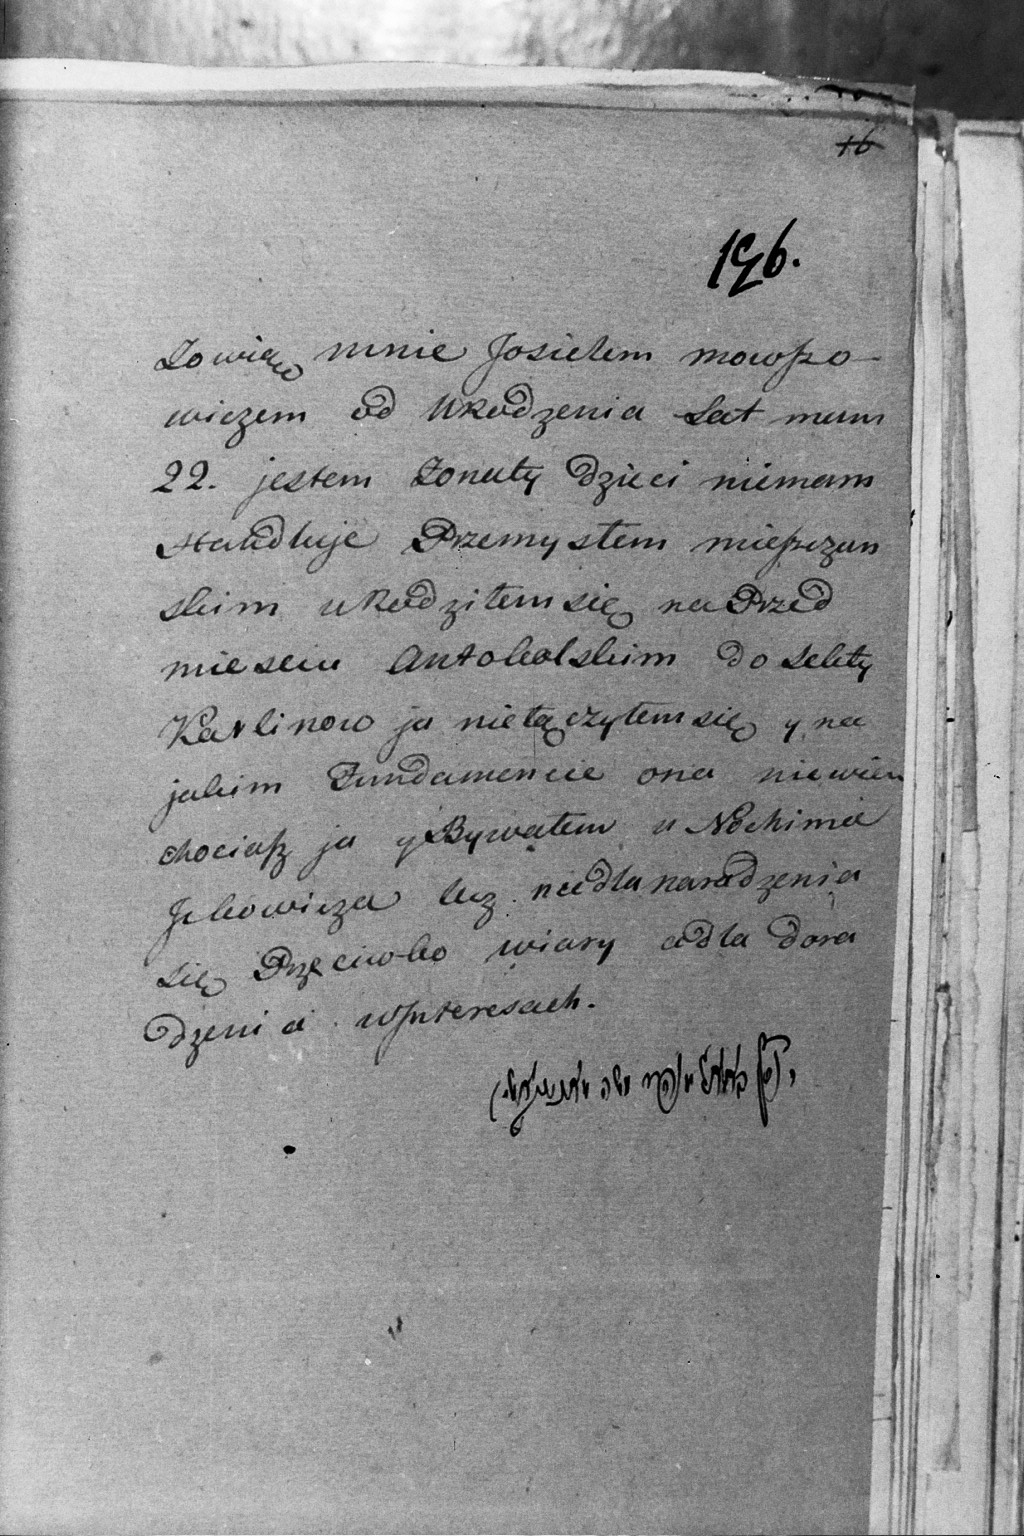 16
196.
Zowią mnie Josielem mowszo-
wiczem od Urodzenia Lat mam
22. jestem Zonaty dzieci niemam
Handluje Przemysłem mieszczan
skim urodziłem się na Przed
miesciu Antokolskim do sekty
Karlinow ja niełączyłem się y na
jakim Fundamencie ona niewiem
chociasz ja y Bywałem u Nochima
Jckowicza lecz niedla naradzenia
się Przeciwko wiary a dla dora
dzenia wJnteresach.